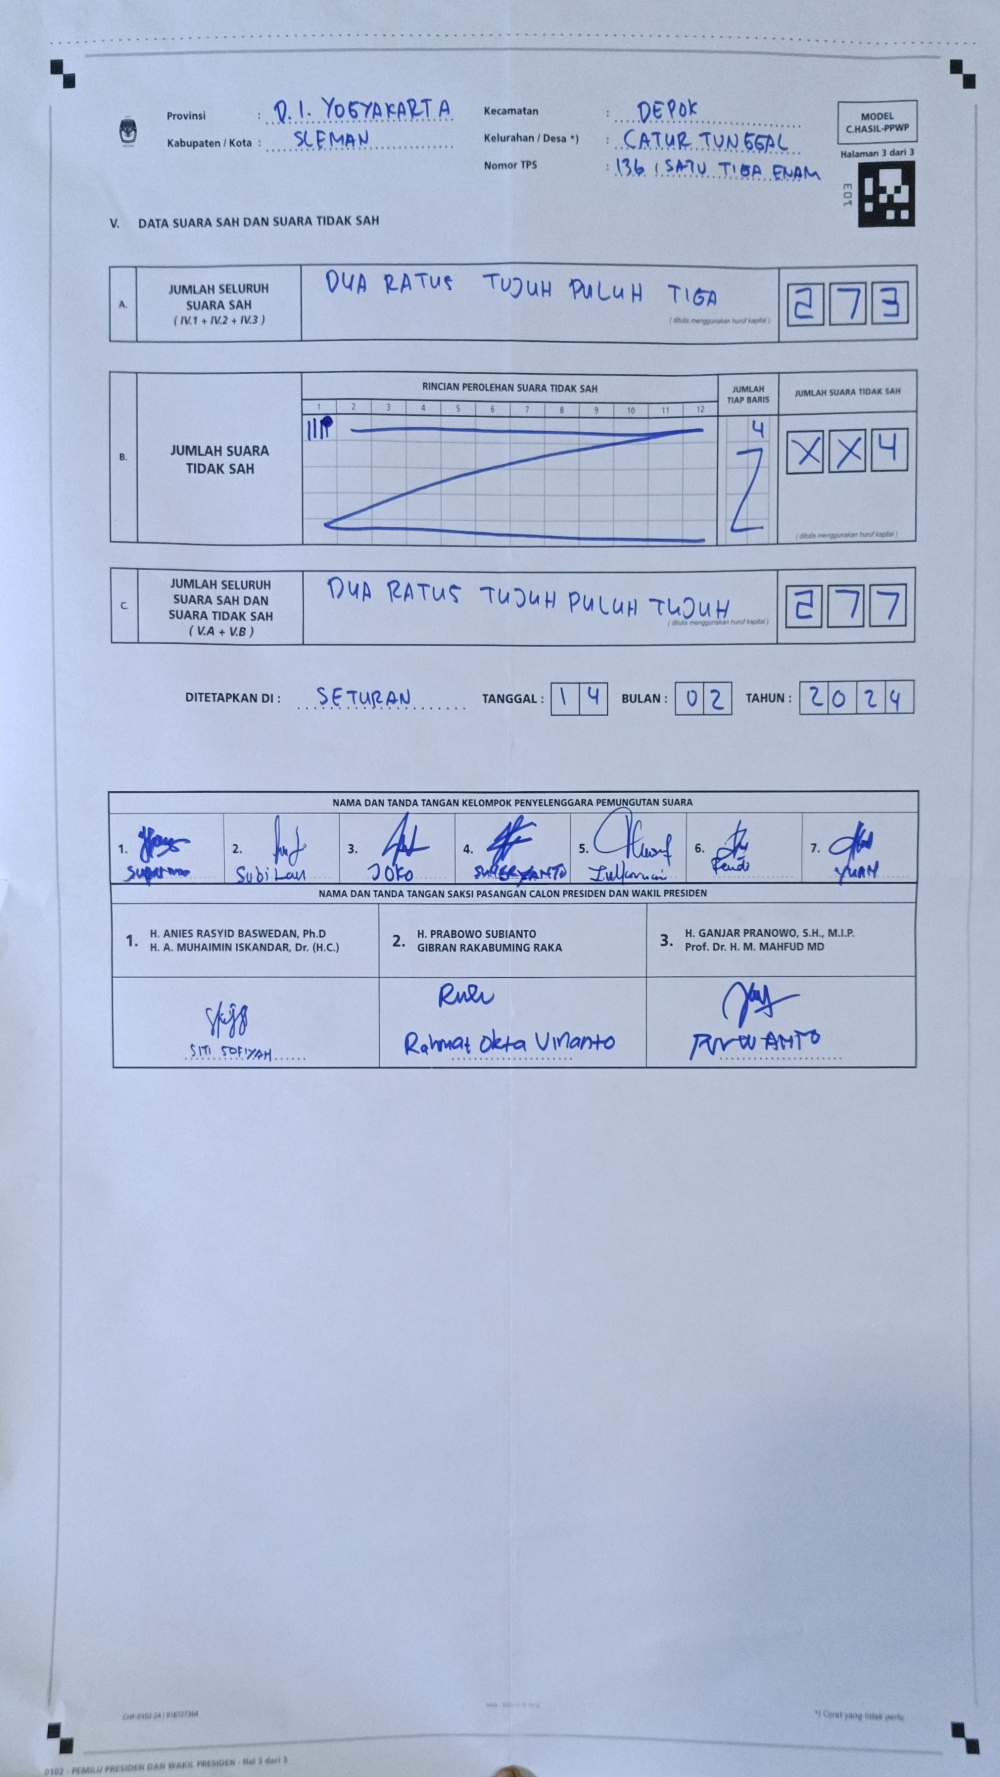 Provinsi : D.I. YOGYAKARTA
Kabupaten / Kota : SLEMAN
Kecamatan : DEPOK
Kelurahan / Desa *) : CATUR TUNGGAL
Nomor TPS : 136 / SATU TIGA ENAM
MODEL
C.HASIL-PPWP
Halaman 3 dari 3
V. DATA SUARA SAH DAN SUARA TIDAK SAH
A. JUMLAH SELURUH
SUARA SAH
( IV.1 + IV.2 + IV.3 )
DUA RATUS TUJUH PULUH TIGA
( ditulis menggunakan huruf kapital )
2 7 3
B. JUMLAH SUARA
TIDAK SAH
RINCIAN PEROLEHAN SUARA TIDAK SAH
1 2 3 4 5 6 7 8 9 10 11 12
JUMLAH
TIAP BARIS
4
JUMLAH SUARA TIDAK SAH
X X 4
( ditulis menggunakan huruf kapital )
C. JUMLAH SELURUH
SUARA SAH DAN
SUARA TIDAK SAH
( V.A + V.B )
DUA RATUS TUJUH PULUH TUJUH
( ditulis menggunakan huruf kapital )
2 7 7
DITETAPKAN DI : SETURAN TANGGAL : 1 4 BULAN : 0 2 TAHUN : 2 0 2 4
NAMA DAN TANDA TANGAN KELOMPOK PENYELENGGARA PEMUNGUTAN SUARA
1. 2. 3. 4. 5. 6. 7.
JOKO YUAN
NAMA DAN TANDA TANGAN SAKSI PASANGAN CALON PRESIDEN DAN WAKIL PRESIDEN
1. H. ANIES RASYID BASWEDAN, Ph.D
H. A. MUHAIMIN ISKANDAR, Dr. (H.C.)
2. H. PRABOWO SUBIANTO
GIBRAN RAKABUMING RAKA
3. H. GANJAR PRANOWO, S.H., M.I.P.
Prof. Dr. H. M. MAHFUD MD
SITI SOFIYAH
Rahmat Okta Virianto
PURWANTO
*) Coret yang tidak perlu
0102 - PEMILU PRESIDEN DAN WAKIL PRESIDEN - Hal 3 dari 3